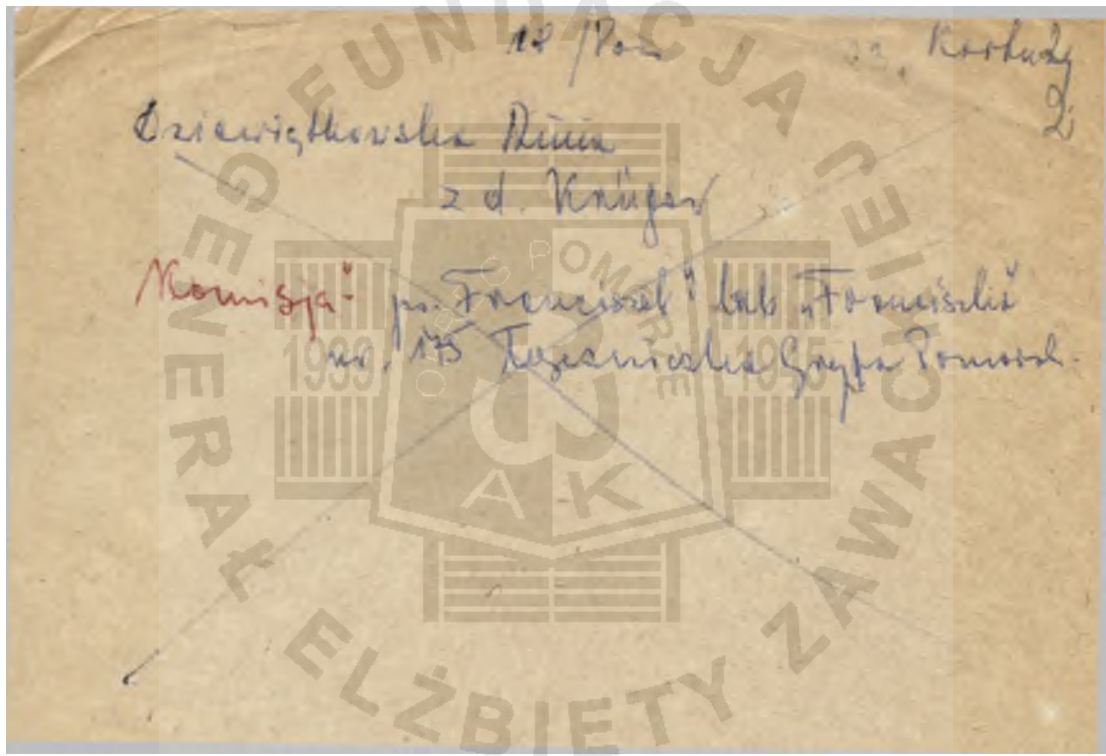 12/Pom Kartuzy
2
Dziewiątkowska Anna
z d. Krüger
"Komisja" ps. "Franciszek" lub "Franciszka"
nr. 175 Łączniczka Gryfa Pomorsk.
FUNDACJA GENERAŁ ELŻBIETY ZAWACKIEJ
OKRĘG POMORZE
1939 1945
AK